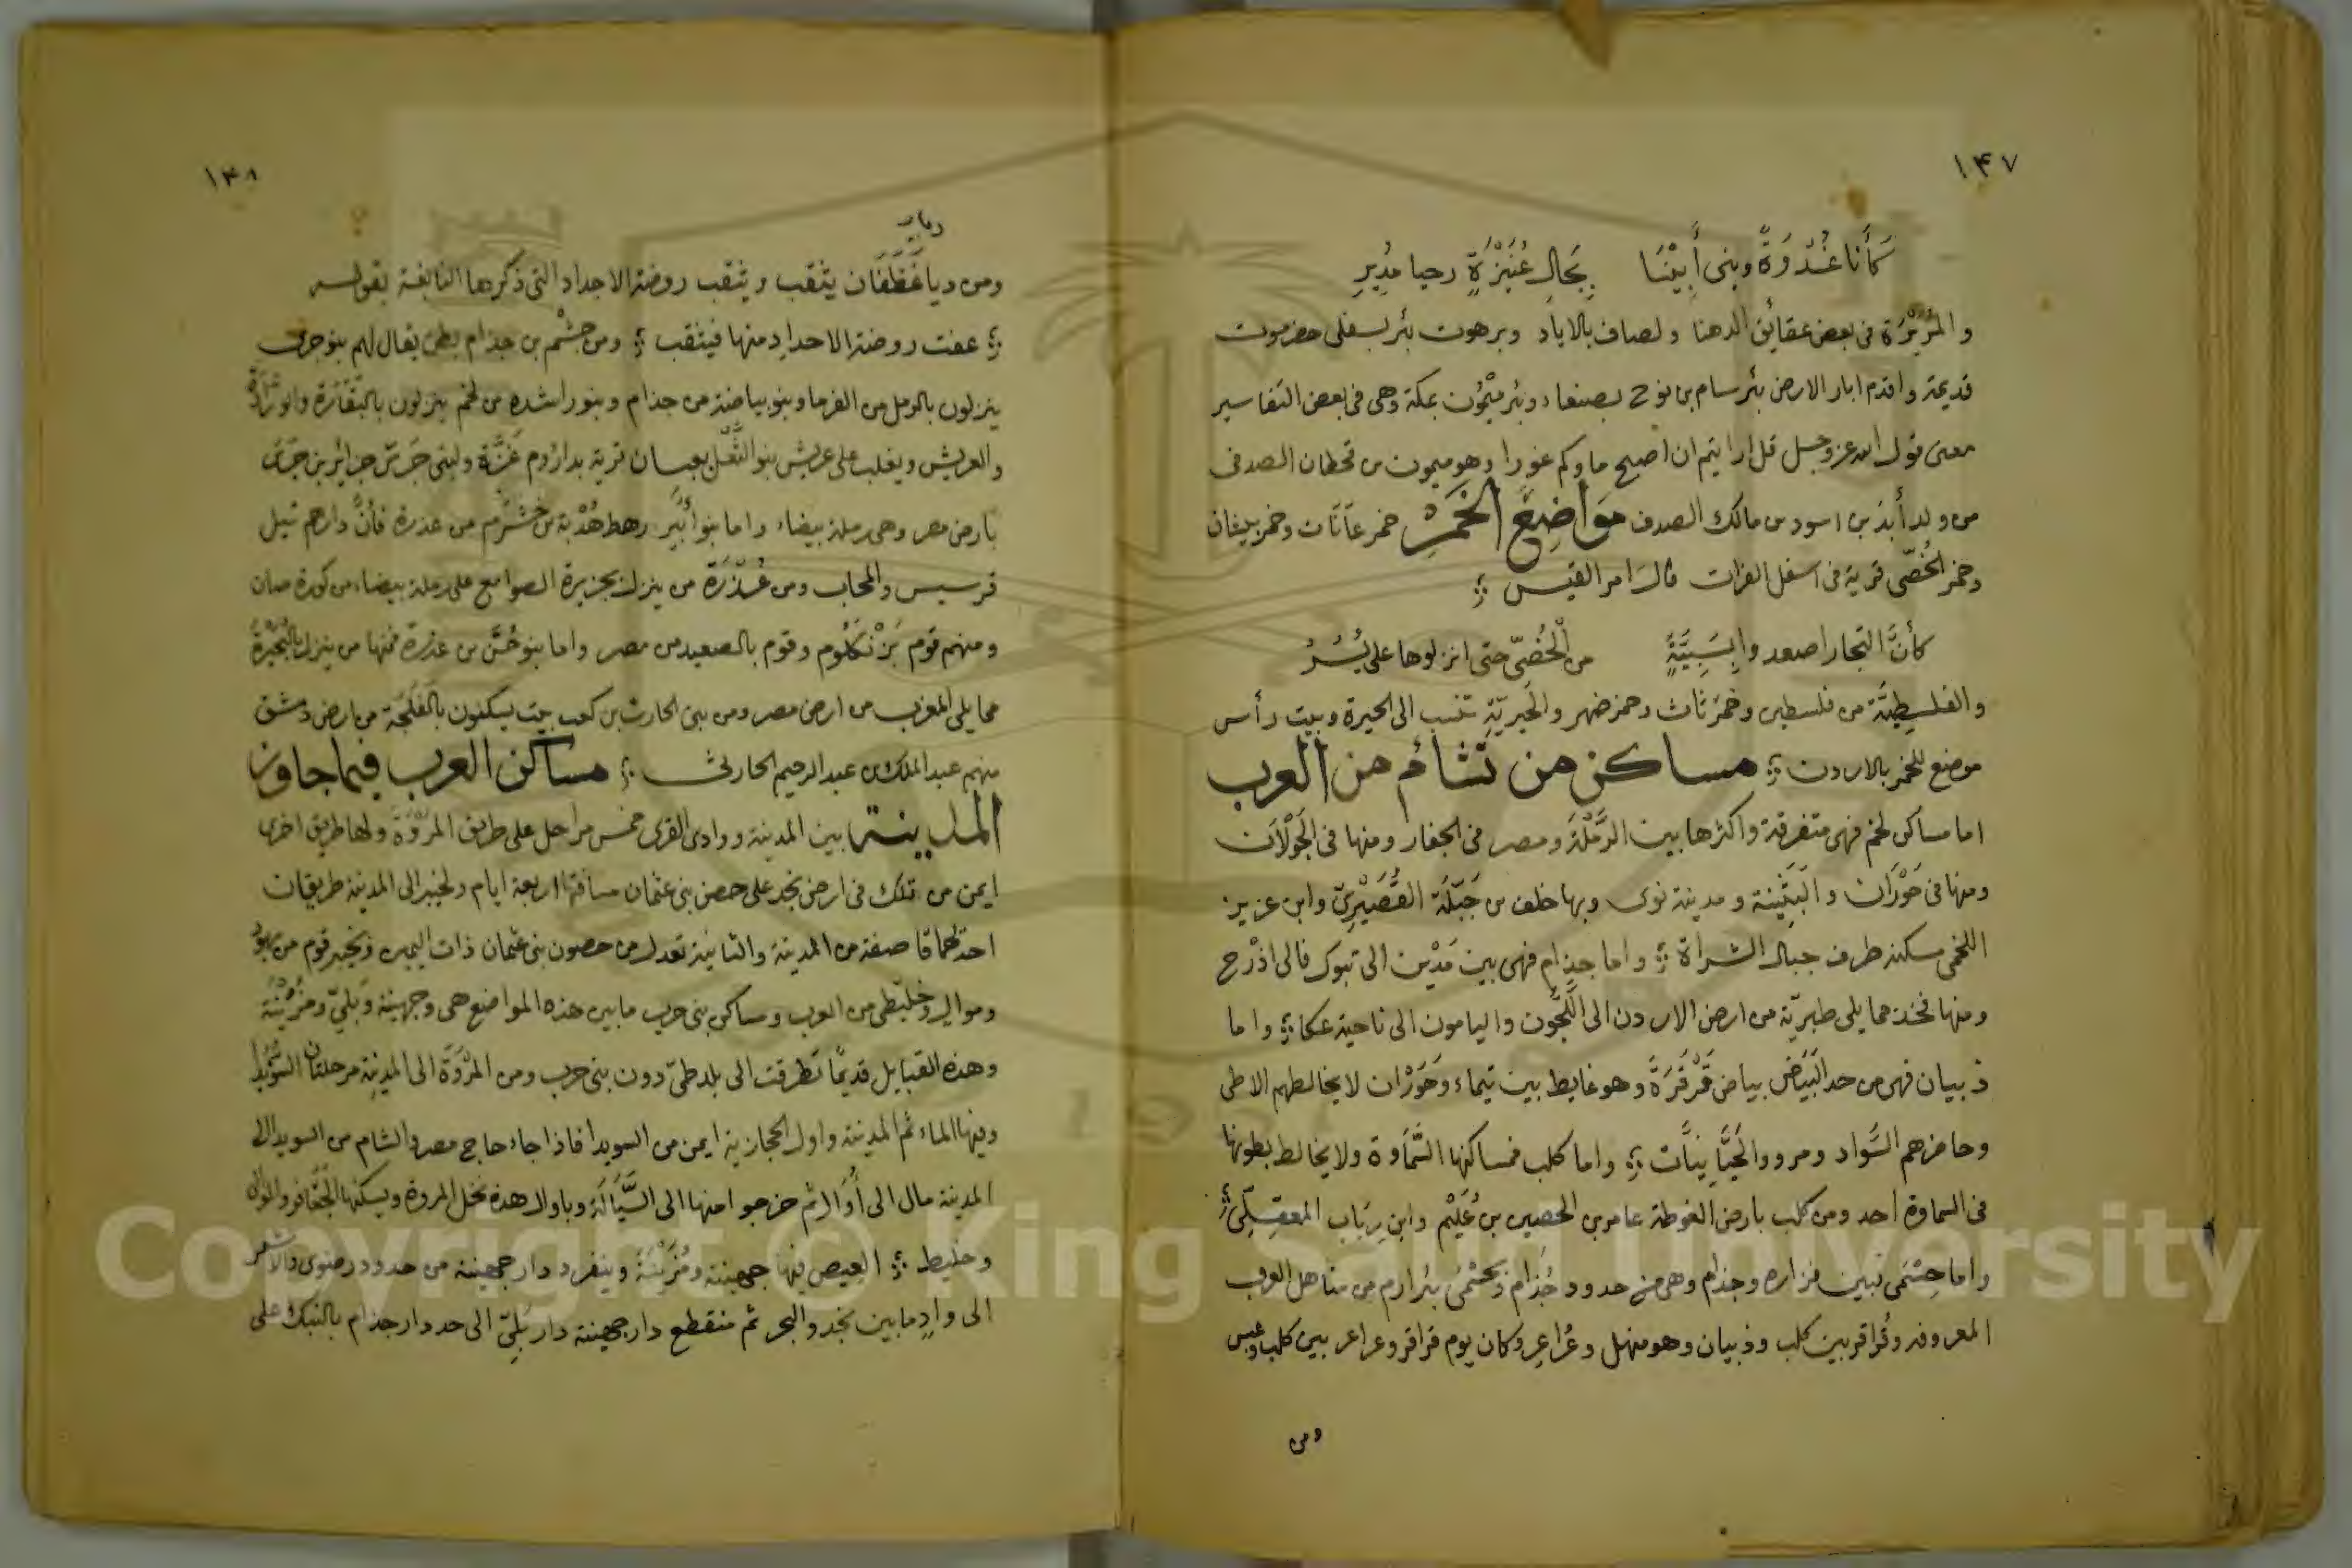 ١٤٧
كَأَنَّا غُدْوَةً وبنى أَبِيْنَا بِجَالِ عُنَيْزَةٍ رحيا مُدِيرِ
والمُرَيْرَة فى بعض عقايق الدهنا ولصاف بالاياد وبرهوت بئر بسفلى حضرموت
قديمة واقدم ابار الارض بئر سام بن نوح بصنعاء وبئر ميْمُون بمكة وهى فى بعض التفاسير
معنى قول الله عز وجل قل ارايتم ان اصبح ماوكم غورا وهو ميمون من قحطان الصدفى
من ولد أبذ بن اسود من مالك الصدف مَوَاضِعُ الخَمْرِ خمر عَانَات وخمر بيسان
وخمر الخُصّى قرية فى اسفل الفرات قال امر القيس
كأنَّ التجار اصعدوا بِسَبِيَّةٍ من الْخُصّى حتى انزلوها على يُسُرُ
والفلسِطِيَّة من فلسطين وخمر ثاث وخمر ضهر والحِيرِيّة تنسب الى الحيرة وبيت رأس
موضع للخمر بالاردن مساكن من تشأم من العرب
اما مساكن لخم فهى متفرقة واكثرها بين الرَّمْلَة ومصر فى الجفار ومنها فى الجَوْلَان
ومنها فى حَوْرَان والبَثَنِيَة ومدينة نوى وبها خلف من جَبَلَة القُصَيْرِىّ وابن عزيز
اللخمى مسكنه طرف جبال الشراة واما جذام فهى بين مَدْيَن الى تبوك فالى اذْرُح
ومنها فخذ مما يلى طبريّة من ارض الاردن الى اللَّجُون واليامون الى ناحية عكا واما
ذبيان فهى من حد البَيَض بياض قَرْقَرَةَ وهو غايط بين تيماء وحَوْران لا يخالطهم الا طى
وحاضرهم السَّواد ومرو والحَيَّانِيَّات واما كلب فمساكنها السَّمَاوة ولا يخالط بطونها
فى السماوة احد ومن كلب بارض الغوطة عامر بن الحصين بن عُلَيْم وابن رِبَاب المعقِلىّ
واما حِسْمَى فبين فزاره وجذام وهى من حدود جُذام وبحسْمى بئر ارم من مناهل العرب
المعروفه وقُراقر بين كلب وذبيان وهو منهل وعُراعر وكان يوم قراقر وعراعر بين كلب وعبس
ومن
١٤٨
ديار
ومن ديا غَطَفَان يثقب ويثقب روضة الاجداد التى ذكرها النابغة بقوله
عفت روضة الاجداد منها فيثقب ومن جشْم بن جذام بطن يقال لهم بنو جرى
ينزلون بالرمل من الفرما وبنو بياضة من جذام وبنو راشده من لخم ينزلون بالبَقّارة والورّادَة
والعريش ويغلب على عريش بنو الثَّعْل قرية بدارُوم غَزَّة ولبنى جَرَش جزائر بنى جَرَش
بارض مصر وهى رملة بيضاء واما بنو أُبَيْر رهط هُدْبة بن خَشْرَم من عذرة فأنَّ دارهم تيل
قرسيس والمحاب ومن عُذْرَة من ينزل بجزيرة الصوامع على رملة بيضاء من كورة صان
ومنهم قوم بَزْنَكَلُوم وقوم بالصعيد من مصر واما بنو حُسْن من عذرة فمنها من ينزل بالبُحَيْرَةُ
مما يلى المغرب من ارض مصر ومن بنى الحارث بن كعب بيت يسكنون بالفَلَجَة من ارض دمشق
منهم عبد الملك بن عبد الرحيم الحارثى مساكن العرب فيما جاوز
المدينة بين المدينة ووادى القرى خمس مراحل على طريق المَرْوَة ولها طريق اخرى
ايمن من تلك فى ارض نجد على حصن بنى عثمان مسافتها اربعة ايام ولخيبر الى المدينة طريقان
احدهما قاصفة من المدينة والثانية تعدل من حصون بنى عثمان ذات اليمين وبخيبر قوم من يهود
وموالى وخليطى من العرب ومساكن بنى حرب مابين هذه المواضع هى وجهينة وَبَلِىّ ومُزَيْنَة
وهذه القبايل قديمًا تطرقت الى بلد طىّ دون بنى حرب ومن المَرْوَةَ الى المدينة مرحلتان السُّوَيْدا
وفيها الماء ثم المدينة واول الحجازية ايمن من السويدا فاذا جاء حاج مصر والشام من السويدا الى
المدينة مال الى أُوَال ثم خرجوا منها الى السَّيَالَة وباوال هذه نخل المروة ويسكنها الجَعَافر والموالى
وخليط العيص فيها جهينة ومُزَيْنَة وينفرد دار جهينة من حدود رضوى والاشعر
الى وادٍ مابين نجد والبحر ثم منقطع دار جهينة دار بَلِىّ الى حد دار جذام بالنبك على